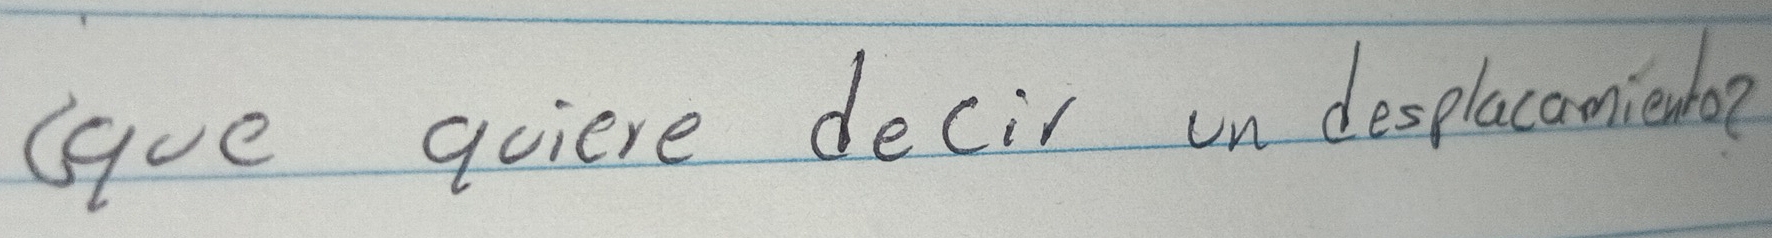 ¿que quiere decir un desplacamiento?